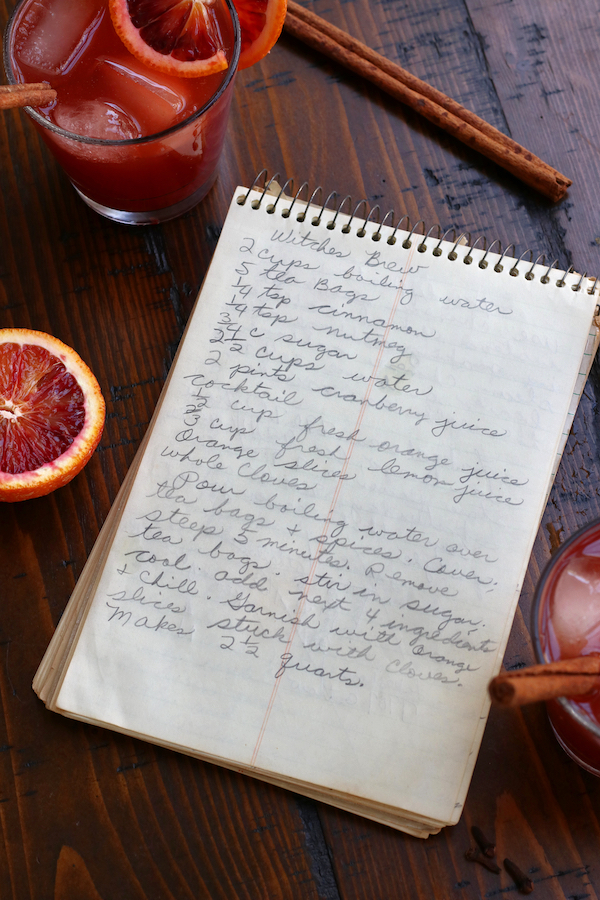 Witches Brew
2 cups boiling water
5 tea Bags
1/4 tsp cinnamon
1/4 tsp nutmeg
3/4 c sugar
2 1/2 cups water
2 pints cranberry juice
cocktail
1/2 cup fresh orange juice
2/3 cup fresh lemon juice
Orange slices
whole cloves
Pour boiling water over
tea bags + spices. Cover,
steep 5 minutes. Remove
tea bags. stir in sugar.
cool. add next 4 ingredients
+ chill. Garnish with orange
slices stuck with cloves.
Makes 2 1/2 quarts.